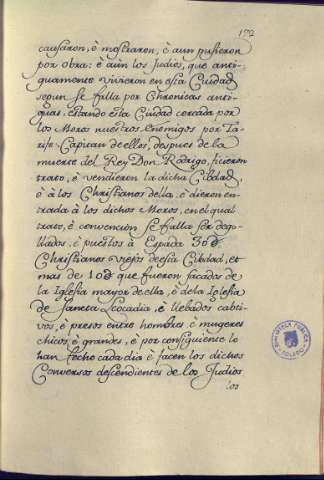 172
causaron, è mostraron, è aun pusieron
por obra: è aùn los Judios, que anti-
guamente vivieron en esta Cuidad,
segun se falla por Chronicas anti-
guas, estando esta Ciudad cercada por
los Moros nuestros enemigos por Ta-
rife Capitan de ellos, despues de la
muerte del Rey Don Rodrigo, ficieron
trato, è vendieron la dicha Cibdad,
è à los Christianos della, è dieron en-
trada à los dichos Moros, en el qual
trato, è convencion se falla ser dego-
llados, è puestos à Espada 306
Christianos viejos de esta Cibdad, et
mas de 106 que fueron sacados de
la Iglesia mayor de ella, è dela Iglesia
de Sancta Leocadia, è llebados cabti-
vos, è presos entre hombres è mugeres
chicos è grandes, è por consiguiente lo
han fecho cada dia è facen los dichos
Conversos descendientes de los Judios
los
BIBLIOTECA PUBLICA
TOLEDO